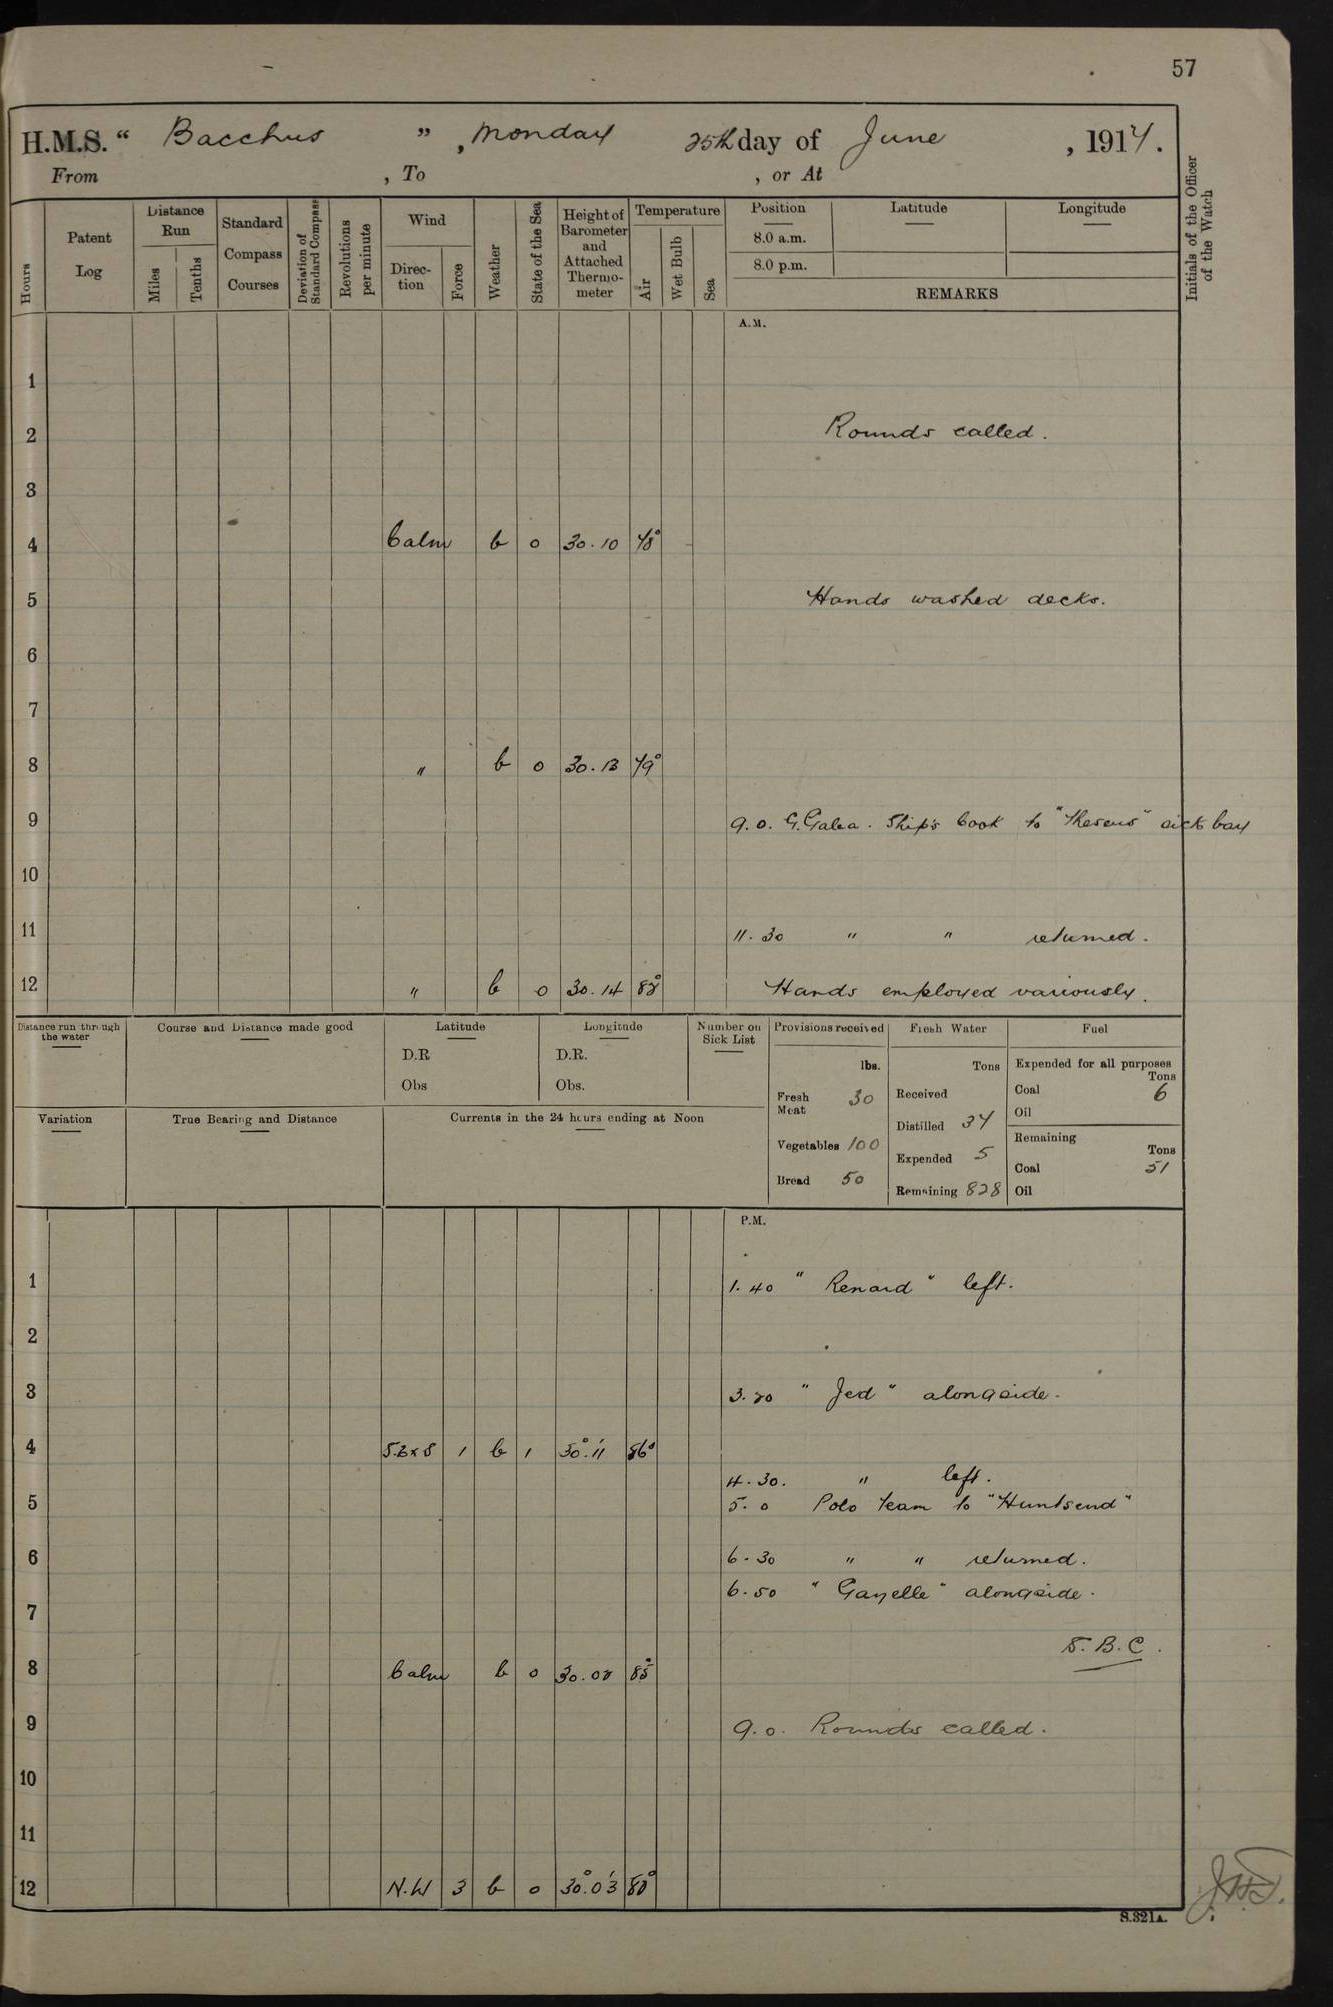 57
H.M.S. " Bacchus ", Monday 25th day of June, 1917.
From , To , or At
Hours
Patent Log
Distance Run
Miles
Tenths
Standard Compass Courses
Deviation of Standard Compass
Revolutions per minute
Wind
Direction
Force
Weather
State of the Sea
Height of Barometer and Attached Thermometer
Temperature
Air
Wet Bulb
Sea
Position Latitude Longitude
8.0 a.m.
8.0 p.m.
REMARKS
Initials of the Officer of the Watch
A.M.
1
2 Rounds called.
3
4 Calm b 0 30.10 78°
5 Hands washed decks.
6
7
8 " b 0 30.13 79°
9 9.0. G. Galea. Ship's Cook to "Theseus" sick bay
10
11 11.30 " " returned.
12 " b 0 30.14 82° Hands employed variously.
Distance run through the water
Course and Distance made good
Latitude
D.R
Obs
Longitude
D.R.
Obs.
Number on Sick List
Provisions received
lbs.
Fresh Meat 30
Vegetables 100
Bread 50
Fresh Water
Tons
Received
Distilled 34
Expended 5
Remaining 828
Fuel
Expended for all purposes
Tons
Coal 6
Oil
Remaining
Tons
Coal 51
Oil
Variation
True Bearing and Distance
Currents in the 24 hours ending at Noon
P.M.
1 1.40 "Renard" left.
2
3 3.20 "Jed" alongside.
4 S.E x S 1 b 1 30.11 86°
4.30. " left.
5 5.0 Polo team to "Huntsend"
6 6.30 " " returned.
6.50 "Gazelle" alongside.
7
S.B.C.
8 Calm b 0 30.08 85°
9 9.0. Rounds called.
10
11
12 N.W 3 b 0 30.03 80°
S.321A.